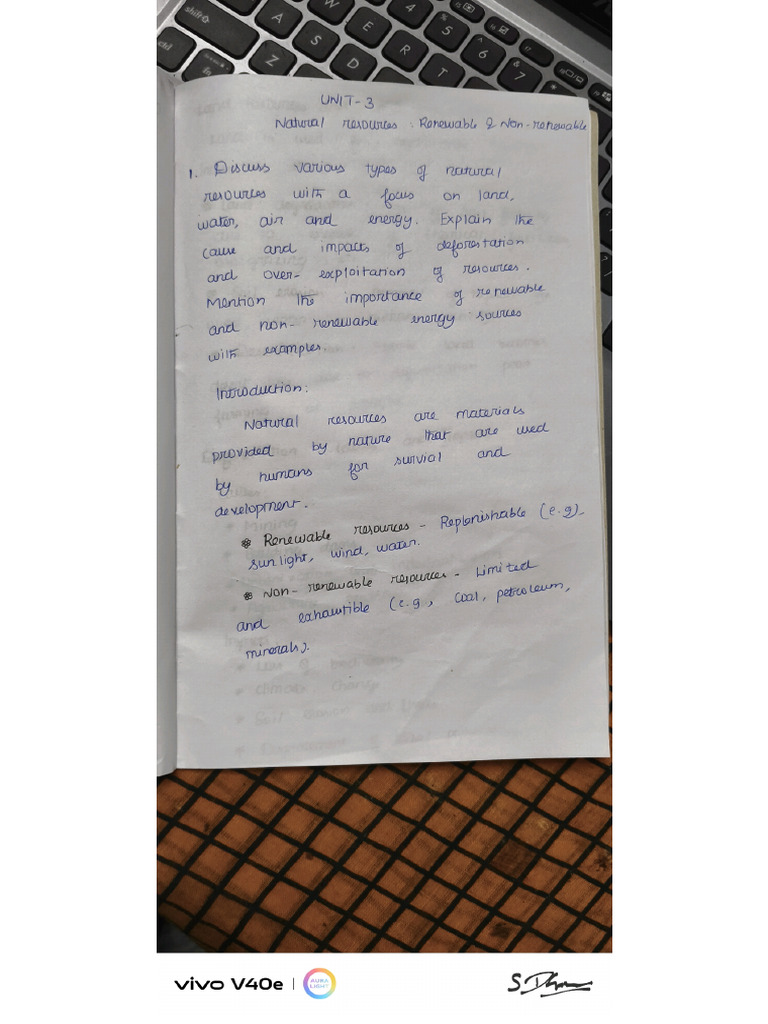 UNIT-3
Natural resources : Renewable & Non-renewable
1. Discuss various types of natural
resources with a focus on land,
water, air and energy. Explain the
cause and impacts of deforestation
and over- exploitation of resources.
Mention the importance of renewable
and non- renewable energy sources
with examples.
Introduction:
Natural resources are materials
provided by nature that are used
by humans for survial and
development.
* Renewable resources - Replenishable (e.g)-
sunlight, wind, water.
* Non- renewable resources - Limited
and exhaustible (e.g, coal, petroleum,
minerals).
vivo V40e | AURA LIGHT